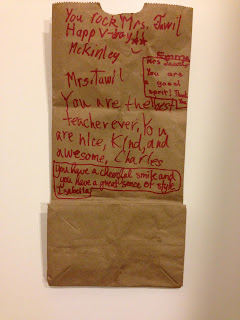 You rock Mrs. Tawil
Happy V-day
McKinley
Mrs. Tawil
You are
a good
sport! Than
Mrs. Tawil
You are the best
teacher ever, You
are nice, Kind, and
awesome, Charles
You have a cheerful smile and
you have a great sense of style
Isabella